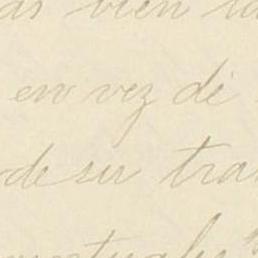 as bien la
en vez de
de su tra